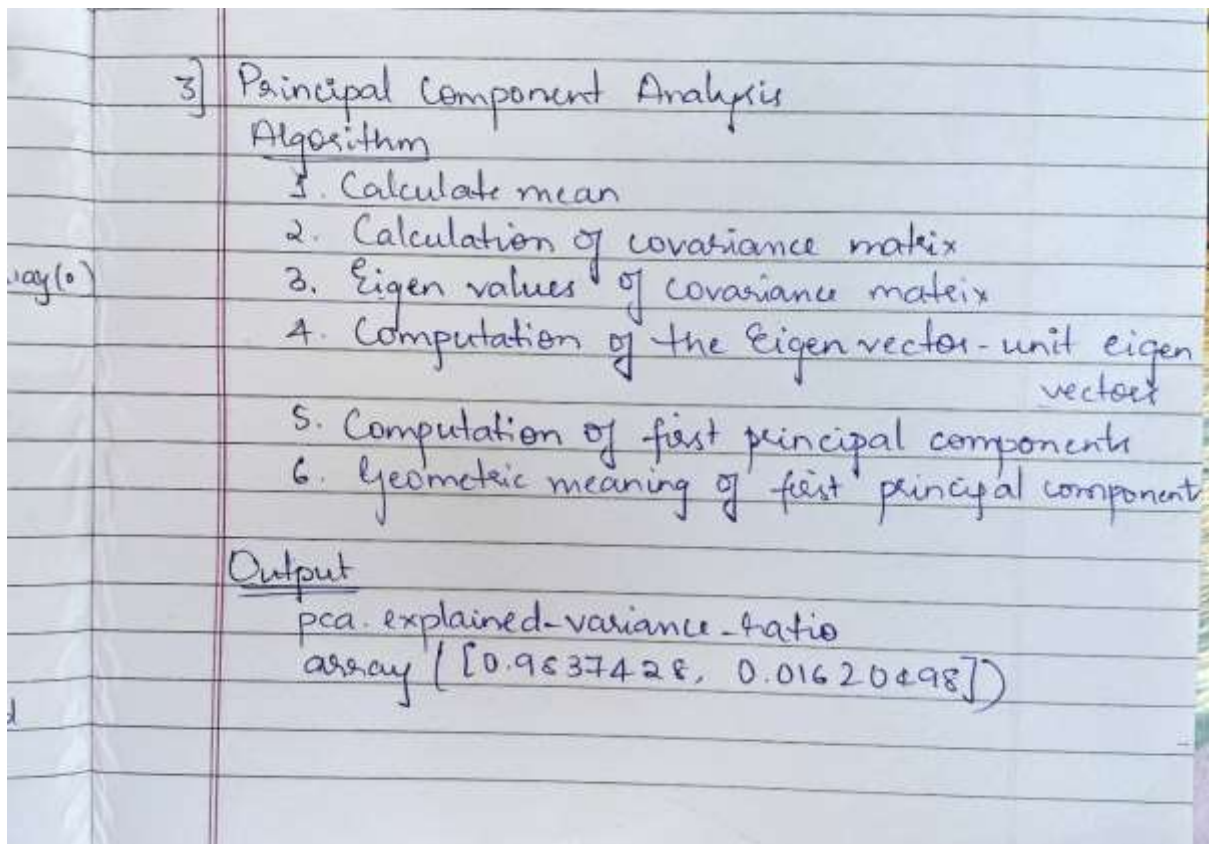 3] Principal Component Analysis
Algorithm
1. Calculate mean
2. Calculation of covariance matrix
3. Eigen values of covariance matrix
4. Computation of the Eigen vector - unit eigen
vectors
5. Computation of first principal components
6. Geometric meaning of first principal component
Output
pca. explained-variance-ratio
array ([0.9837428, 0.01620498])